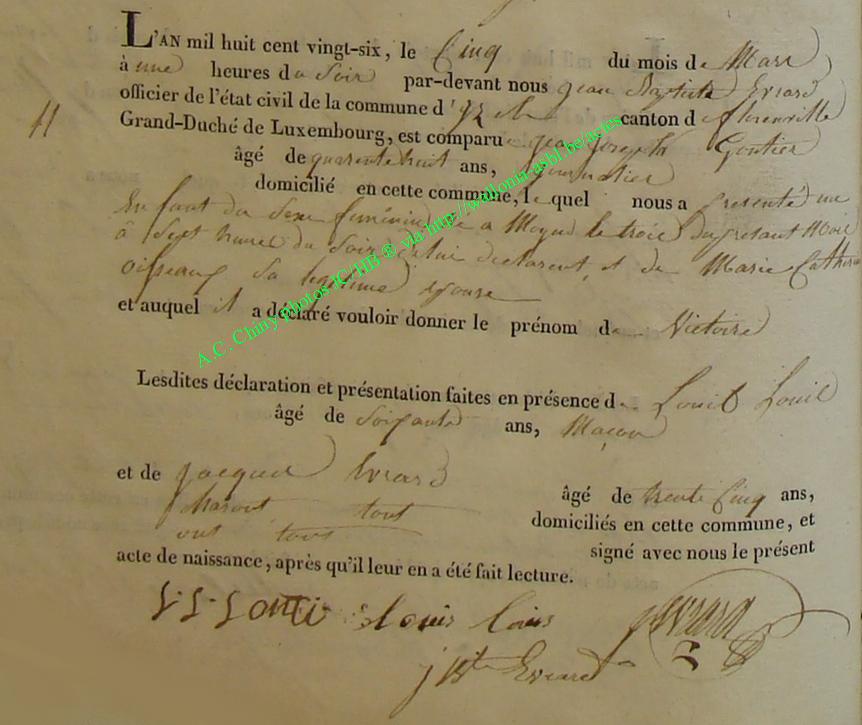 L'AN mil huit cent vingt-six, le Cinq du mois de Mars
à une heures du Soir par-devant nous jean Baptiste Evrard
officier de l'état civil de la commune d' canton de florenville
11
Grand-Duché de Luxembourg, est comparu jean joseph Gontier
âgé de quarante huit ans, journalier
domicilié en cette commune, lequel nous a presenté un
Enfant du Sexe feminin né a Moyen le trois du présent Mois
à Sept heures du Soir de lui declarant, et de Marie Catherine
oiseaux Sa legitime epouse
et auquel il a déclaré vouloir donner le prénom de Victoire
A.C. Chiny photos IC/HB ® via http://wallonia-asbl.be/actes
Lesdites déclaration et présentation faites en présence de Louis Louis
âgé de Soixante ans, Maçon
et de jacques Evrard
âgé de trente Cinq ans,
tout
domiciliés en cette commune, et
ont tous
signé avec nous le présent
acte de naissance, après qu'il leur en a été fait lecture.
louis louis jEvrard
j Bte Evrard